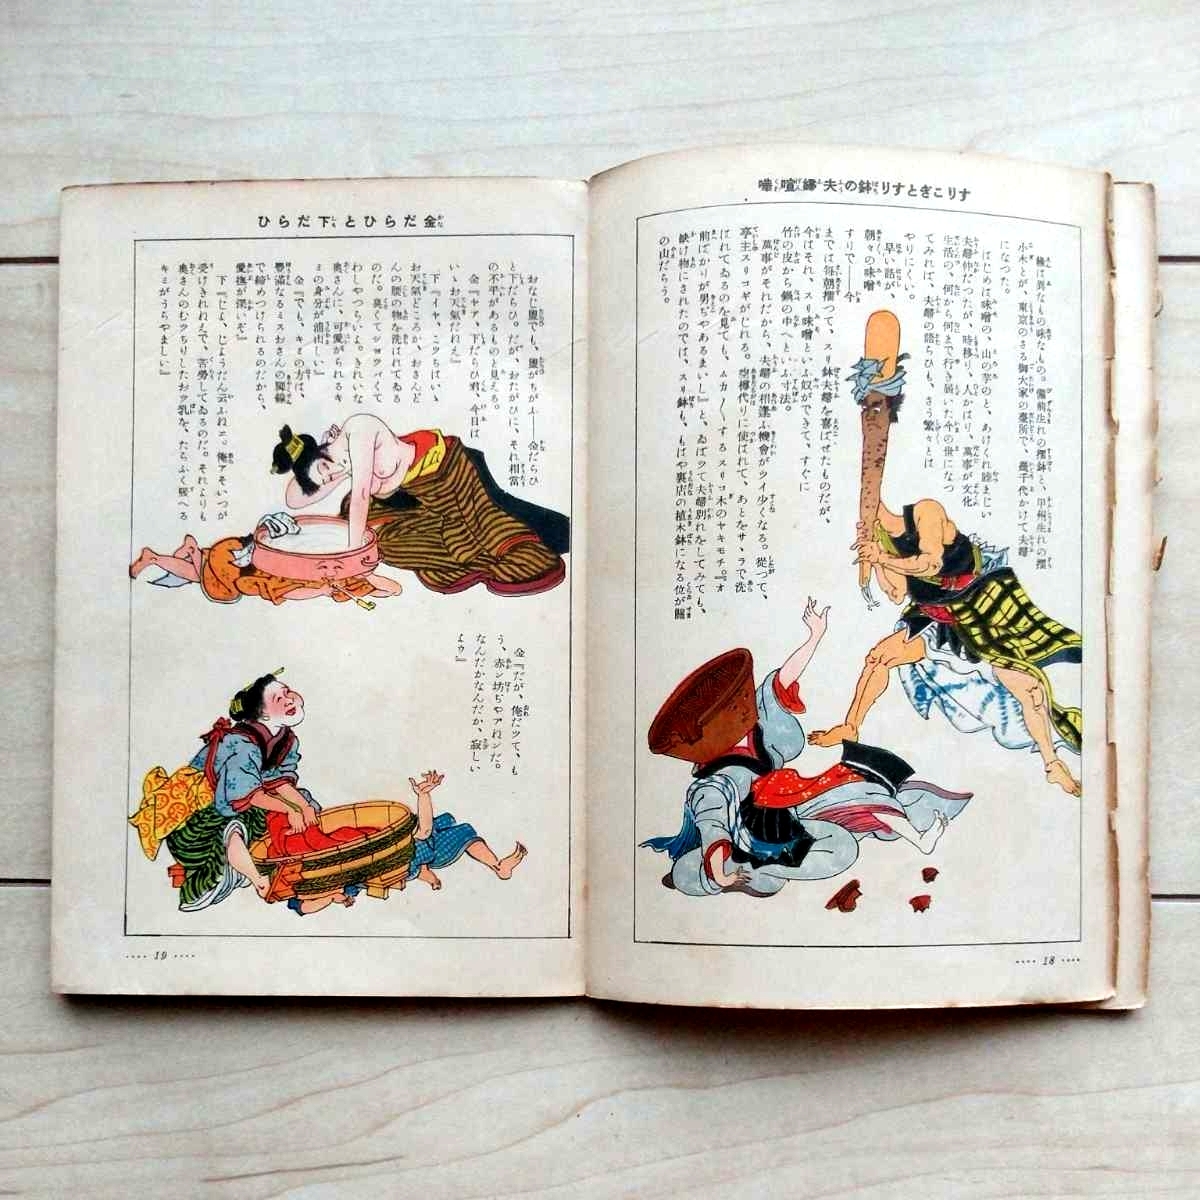 すりこぎとすり鉢の夫婦喧嘩
縁は異なもの味なもの。備前生れの摺鉢と、甲州生れの摺
小木とが、東京のさる御大家の臺所で、幾千代かけて夫婦
になつた。
はじめは味噌の、山の芋のと、あけくれ睦まじい
夫婦仲だつたが、時移り、人かはり、萬事が文化
生活の、何から何まで行き届いた今の世になつ
てみれば、夫婦の語らひも、さう繁々とは
やりにくい。
早い話が、
朝々の味噌
すりで――今
までは毎朝摺つて、スリ鉢夫婦を喜ばせたものだが、
今はそれ、スリ味噌といふ奴ができて、すぐに
竹の皮から鍋の中へといふ寸法。
萬事がそれだから、夫婦の相逢ふ機會がツイ少くなる。從つて、
亭主スリコギがじれる。空樽代りに使はれて、あとをサヽラで洗
はれてゐるのを見ても、ムカ〱するスリコ木のヤキモチ。『オ
前ばかりが男ぢやあるまいし』と、ゐばツて夫婦別れをしてみても、
缺け物にされたのでは、スリ鉢も、もはや裏店の植木鉢になる位が關
の山だらう。
18
金だらひと下だらひ
おなじ盥でも、盥がちがふ――金だらひ
と下だらひ。だが、おたがひに、それ相當
の不平があるものと見える。
金『ヤア、下だらひ君、今日は
いゝお天氣だねえ』
下『イヤ、こツちはいゝ
お天氣どころか、おさんど
んの腰の物を洗はれてゐる
のだ。臭くてシヨツパくて
わしやつらいよ。きれいな
奥さんに、可愛がられるキ
ミの身分が浦山しい』
金『でも、キミの方は、
豐滿なるミスおさんの脚線
で締めつけられるのだから、
愛撫が深いぞ』
下『じよ、じようだん云ふねエ。俺アそいつが
受けきれねえで、苦勞してゐるのだ。それよりも
奥さんのむツちりしたおツ乳を、たらふく睨へる
キミがうらやましい』
金『だが、俺だツて、も
う、赤ン坊ぢやアねンだ。
なんだかなんだか、寂しい
よウ』
19